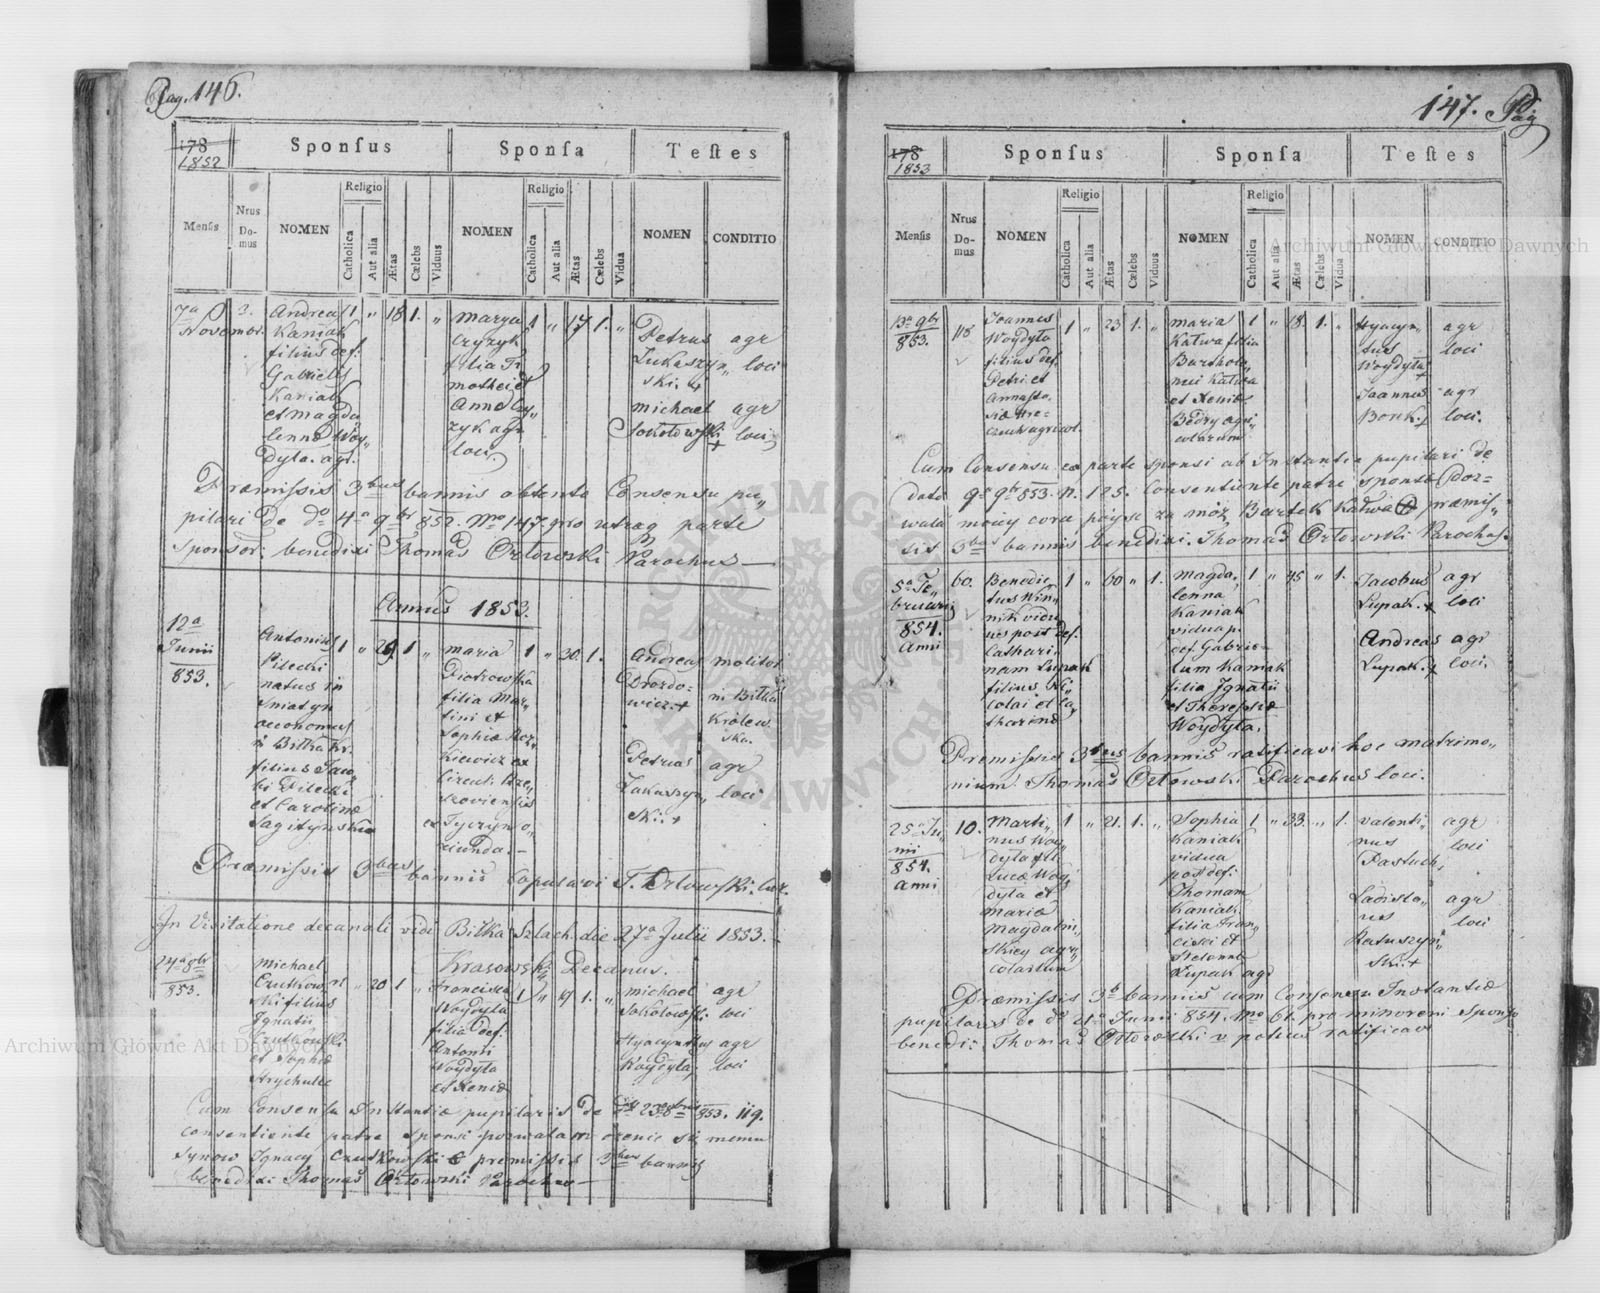 Pag. 146.
178
1852
Sponsus
Sponsa
Testes
Mensis
Nrus Domus
NOMEN
Religio
Catholica
Aut alia
Ætas
Cælebs
Viduus
NOMEN
Religio
Catholica
Aut alia
Ætas
Cælebs
Vidua
NOMEN
CONDITIO
7a Novembr.
3.
Andreas
Kaniak
filius def.
Gabrielis
Kaniak
et Magda
lenna Woy„
dyta. agr.
1 „ 18 1. „
Marya
Czyzyk
filia Ti
mothei et
Anna Czy„
zyk agr
loci.
1 „ 17 1. „
Petrus agr
Lukaszyn„ loci
ski. +
Michael agr
Sokołowski loci
+
Præmissis 3bus bannis obtento Consensu pu„
pilari de do 4a 9br 852. No 147 pro utraq parte
Sponsor: benedixi Thomas Orłowski Parochus —
Annus 1853.
12a
Junii
853.
Antonius
Pilecki
natus in
Sniatyn
oeconomus
in Bitka Kr.
filius Jaco
bi Pilecki
et Carolina
1 „ 29 1 „
Maria
Piotrowska
filia Mar„
tini et
Sophia
1 „ 30. 1.
Andreas molitor
Drozdo= in Bitka
wicz. + Królew
ska.
Petrus agr
Lukaszyn„ loci
ski. +
Præmissis 3bus bannis Copulavi T. Orłowski. Cur.
In Visitatione decanali vidi Bitka Szlach. die 27a Julii 1853.
Krasowski Decanus.
24a 8br
853.
Michael
Czutkow
ski filius
Ignatii
Czutkowski
et Sophia
Hrychulec
„ 20 1 „
Francisca
Woydyta
filia def.
Antonii
Woydyta
et Xenia
1 „ 19 1. „
Michael agr
Sokołowski loci
Hyacynthus agr
Woydyta loci
Cum Consensu Instantiæ pupilaris de do 23 8bris 853. 119.
consentiente patre sponsi pozwalam ozenic się memu
synow Ignacy Czutkowski præmissis 3bus bannis
benedixi Thomas Orłowski Parochus —
147. Pag
178
1853
Sponsus
Sponsa
Testes
Mensis
Nrus Domus
NOMEN
Religio
Catholica
Aut alia
Ætas
Cælebs
Viduus
NOMEN
Religio
Catholica
Aut alia
Ætas
Cælebs
Vidua
NOMEN
CONDITIO
13a 9br
853.
118
Joannes
Woydyta
filius def.
Petri et
Annasta„
siæ Hre„
czuch agricol.
1 „ 23 1. „
Maria
Katwa filia
Bartholo„
mei Katwa
et Xenia
Bedry agri„
colarum
1 „ 18. 1. „
Hyacyn„ agr
tus loci
Woydyta +
Joannes agr
loci.
Cum Consensu ex parte sponsi ab Instantia pupilari de
dato 9a 9br 853. N. 125. Consentiente patre sponsæ Doz=
walá moiey cora póyse za móz Bartek Katwa præmis„
sis 3bus bannis benedixi. Thomas Orłowski Parochus.
5a Fe„
bruarij
854.
Anni
60.
Benedic„
tus Win„
nik vidu„
us post def.
Cathari„
nam Lupak
filius Ni„
colai et Ca„
tharina
1 „ 60 „ 1.
Magda„
lenna
Kaniak
vidua p.
def. Gabrie=
lum Kaniak
filia Ignatii
et Theressiæ
Woydyta.
1 „ 45 „ 1.
Jacobus agr
Lupak. + loci
Andreas agr
Lupak. + loci.
Premissis 3bus bannis ratificavi hoc matrimo„
nium. Thomas Orłowski Parochus loci.
25a Ju„
nii
854.
Anni
10.
Marti„
nus Woy„
dyta fil.
Lucæ Woy„
dyta et
Maria
Magdalni„
skiey agri„
colarum
1 „ 21. 1. „
Sophia
Kaniak
vidua
post def.
Thomam
Kaniak
filia Fran„
cisci et
Lupak agr
1 „ 33. „ 1.
Valenti„ agr
nus loci
Pastuch„
Ladisla„ agr
us loci
Ratuszyn„
ski. +
Præmissis 3b bannis cum Consensu Instantiæ
pupilaris de do 21a Junii 854. No 61. pro minoreni Sponso
benedixi, Thomas Orłowski v potius ratificavi
ARCHIWUM GŁÓWNE AKT DAWNYCH
Archiwum Główne Akt Dawnych
Archiwum Główne Akt Dawnych